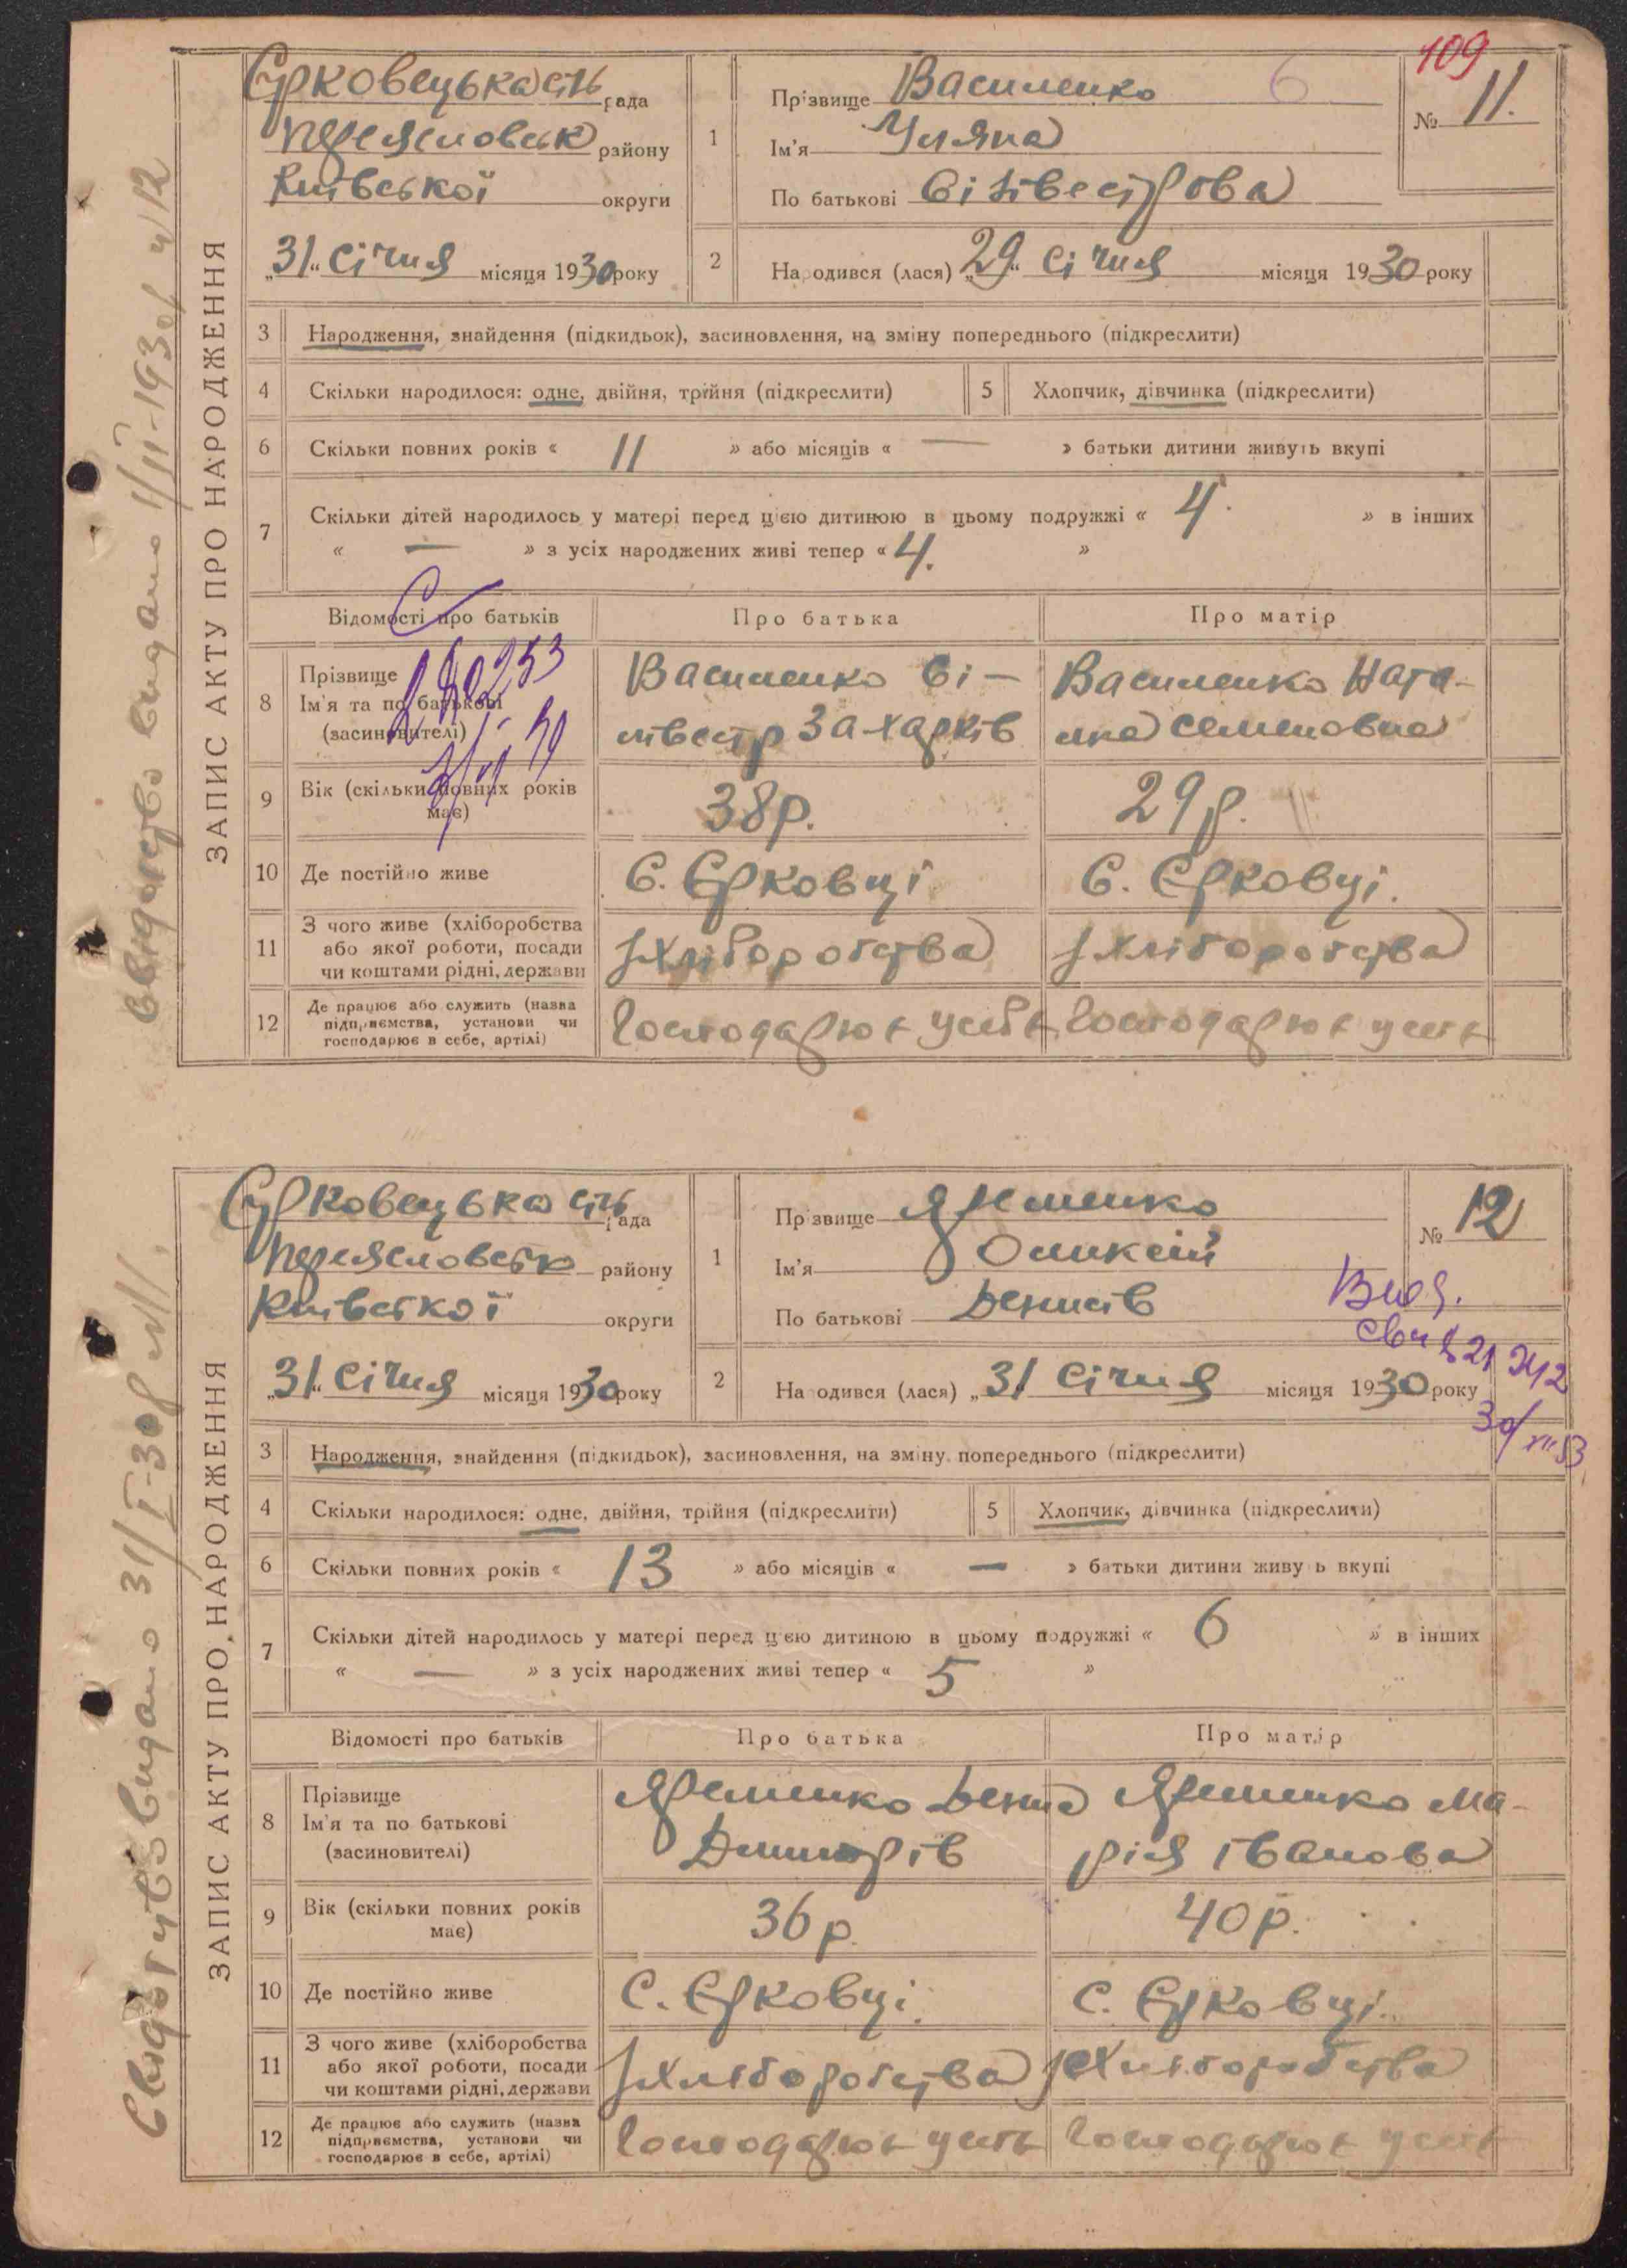 109
Єрковецька сіль рада
Переясловськ району
Київської округи
„31“ Січня місяця 1930 року
1
Прізвище Василенко 6
Ім'я Уляна
По батькові Сілівестрова
№ 11.
2
Народився (лася) „29“ Січня місяця 1930 року
ЗАПИС АКТУ ПРО НАРОДЖЕННЯ
3 Народження, знайдення (підкидьок), засиновлення, на зміну попереднього (підкреслити)
4 Скільки народилося: одне, двійня, трійня (підкреслити)
5 Хлопчик, дівчинка (підкреслити)
6 Скільки повних років « 11 » або місяців « — » батьки дитини живуть вкупі
7 Скільки дітей народилось у матері перед цією дитиною в цьому подружжі « 4. » в інших
« — » з усіх народжених живі тепер « 4. »
Відомості про батьків Про батька Про матір
8 Прізвище
Ім'я та по батькові
(засиновителі)
Василенко Сі-
лівестр Захарків
Василенко Ната-
лка Семеновна
9 Вік (скільки повних років
має)
38р. 29р.
10 Де постійно живе С. Єрковці С. Єрковці.
11 З чого живе (хліборобства
або якої роботи, посади
чи коштами рідні, держави
з хліборобства з хліборобства
12 Де працює або служить (назва
підприємства, установи чи
господарює в себе, артілі)
Господарює у себе Господарює у себе
Свідоцтво видано 1/II-1930р ч 12
Єрковецька сіль рада
Переясловськ району
Київської округи
„31“ Січня місяця 1930 року
1
Прізвище Яременко
Ім'я Олексій
По батькові Денисів
№ 12
Выд.
2
Народився (лася) „31 Січня місяця 1930 року
ЗАПИС АКТУ ПРО НАРОДЖЕННЯ
3 Народження, знайдення (підкидьок), засиновлення, на зміну попереднього (підкреслити)
4 Скільки народилося: одне, двійня, трійня (підкреслити)
5 Хлопчик, дівчинка (підкреслити)
6 Скільки повних років « 13 » або місяців « — » батьки дитини живуть вкупі
7 Скільки дітей народилось у матері перед цією дитиною в цьому подружжі « 6 » в інших
« — » з усіх народжених живі тепер « 5 »
Відомості про батьків Про батька Про матір
8 Прізвище
Ім'я та по батькові
(засиновителі)
Яременко Денис
Дмитрів
Яременко Ма-
рія Іванова
9 Вік (скільки повних років
має)
36р. 40р.
10 Де постійно живе С. Єрковці. С. Єрковці.
11 З чого живе (хліборобства
або якої роботи, посади
чи коштами рідні, держави
з хліборобства з хліборобства
12 Де працює або служить (назва
підприємства, установи чи
господарює в себе, артілі)
Господарює у себе Господарює у себе
Свідоцтво видано 31/I-30р №11.